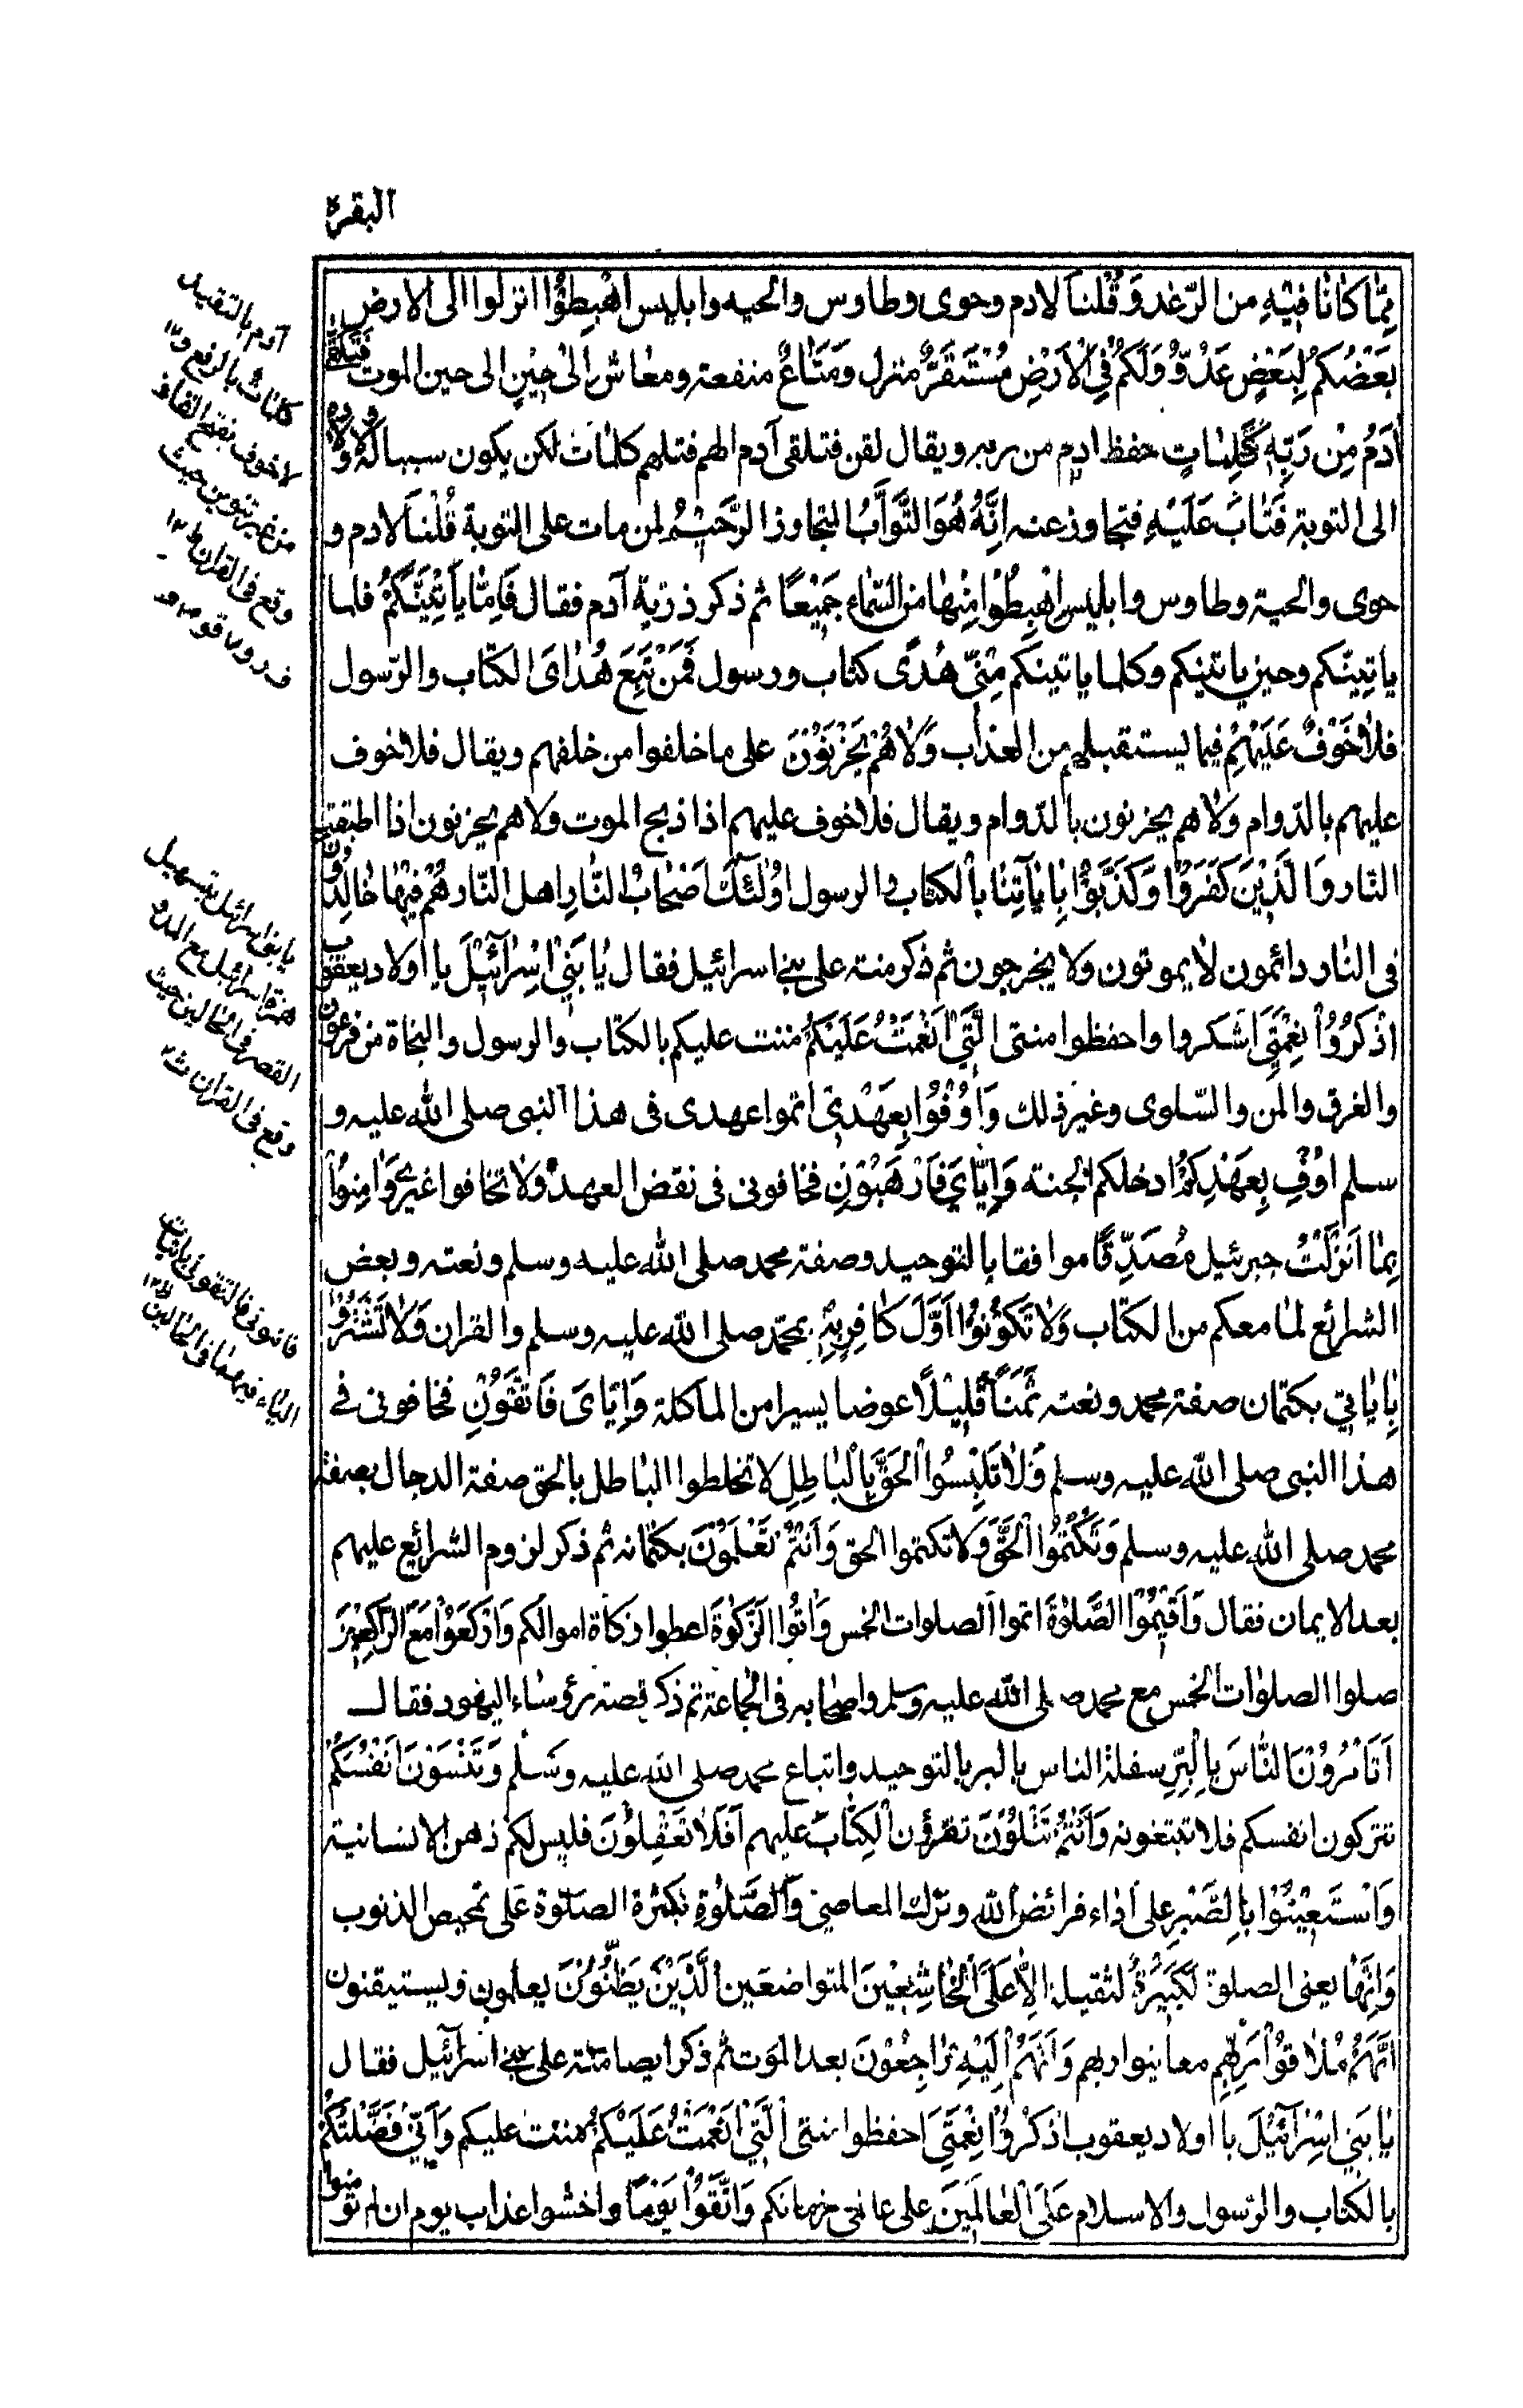 البقرة
مِمَّا كَانَا فِيْهِ من الرّغد وَقُلْنَا لادم وحوى وطاوس والحيه وابليس اهْبِطُوْا انزلوا الى الارض
بَعْضُكُمْ لِبَعْضٍ عَدُوٌّ وَلَكُمْ فِي الْاَرْضِ مُسْتَقَرٌّ منزل وَمَتَاعٌ منفعته ومعاش اِلٰى حِيْنٍ الى حين الموت فَتَلَقّٰى
اٰدَمُ مِنْ رَبِّهٖ كَلِمٰاتٍ حفظ ادم من ربه ويقال لقن فتلقى آدم الهم فتلهم كلمات لكن يكون سببا له ولاولاده
الى التوبة فَتَابَ عَلَيْهِ فتجاوز عنه اِنَّهٗ هُوَ التَّوَّابُ المتجاوز الرَّحِيْمُ لمن مات على التوبة قُلْنَا لادم و
حوى والحية وطاوس وابليس اهْبِطُوْا مِنْهَا من السّماء جَمِيْعًا ثم ذكر ذرّية آدم فقال فَاِمَّا يَأْتِيَنَّكُمْ فلما
ياتينّكم وحين ياتينكم وكلما ياتينكم مِنِّيْ هُدًى كتاب ورسول فَمَنْ تَبِعَ هُدَايَ الكتاب والرّسول
فَلَا خَوْفٌ عَلَيْهِمْ فيما يستقبلهم من العذاب وَلَا هُمْ يَحْزَنُوْنَ على ما خلفوا من خلفهم ويقال فلا خوف
عليهم بالدّوام ولا هم يحزنون بالدّوام ويقال فلا خوف عليهم اذا ذبح الموت ولا هم يحزنون اذا اطبقت
النار وَالَّذِيْنَ كَفَرُوْا وَكَذَّبُوْا بِاٰيَاتِنَا بالكتاب والرسول اُولٰئِكَ اَصْحَابُ النَّارِ اهل النّار هُمْ فِيْهَا خَالِدُوْنَ
فى النار دائمون لا يموتون ولا يخرجون ثم ذكر منته على بنى اسرائيل فقال يَا بَنِيْ اِسْرَآئِيْلَ يا اولاد يعقوب
اذْكُرُوْا نِعْمَتِيَ اشكروا واحفظوا منتى الَّتِيْ اَنْعَمْتُ عَلَيْكُمْ مننت عليكم بالكتاب والرسول والنجاة من فرعون
والغرق والمن والسّلوى وغير ذلك وَاَوْفُوْا بِعَهْدِيْ اتموا عهدى فى هذا النبى صلى الله عليه و
سلم اُوْفِ بِعَهْدِكُمْ ادخلكم الجنة وَاِيَّايَ فَارْهَبُوْنِ فخافونى فى نقض العهد ولا تخافوا غيرى وَاٰمِنُوْا
بِمَا اَنْزَلْتُ جبرئيل مُصَدِّقًا موافقا بالتوحيد وصفة محمد صلى الله عليه وسلم ونعته وبعض
الشرائع لما معكم من الكتاب وَلَا تَكُوْنُوْا اَوَّلَ كَافِرٍ بِهٖ بمحمّد صلى الله عليه وسلم والقران وَلَا تَشْتَرُوْا
بِاٰيَاتِيْ بكتمان صفة محمد ونعته ثَمَنًا قَلِيْلًا عوضا يسيرا من الماكلة وَاِيَّايَ فَاتَّقُوْنِ فخافونى فى
هذا النبى صلى الله عليه وسلم وَلَا تَلْبِسُوا الْحَقَّ بِالْبَاطِلِ لا تخلطوا الباطل بالحق صفة الدجال بصفة
محمد صلى الله عليه وسلم وَتَكْتُمُوا الْحَقَّ ولا تكتموا الحق وَاَنْتُمْ تَعْلَمُوْنَ بكتمانه ثم ذكر لزوم الشرائع عليهم
بعد الايمان فقال وَاَقِيْمُوا الصَّلٰوةَ اتموا الصلوات الخمس وَاٰتُوا الزَّكٰوةَ اعطوا زكاة اموالكم وَارْكَعُوْا مَعَ الرَّاكِعِيْنَ
صلوا الصلوات الخمس مع محمد صلى الله عليه وسلم واصحابه فى الجماعة ثم ذكر قصة رؤساء اليهود فقال
اَتَأْمُرُوْنَ النَّاسَ بِالْبِرِّ سفلة الناس بالبر بالتوحيد واتباع محمد صلى الله عليه وسلم وَتَنْسَوْنَ اَنْفُسَكُمْ
تتركون انفسكم فلا تبتغونه وَاَنْتُمْ تَتْلُوْنَ تقرؤن الْكِتَابَ عليهم اَفَلَا تَعْقِلُوْنَ فليس لكم ذهن الانسانية
وَاسْتَعِيْنُوْا بِالصَّبْرِ على اداء فرائض الله وترك المعاصى وَالصَّلٰوةِ بكثرة الصلوة على تمحيص الذنوب
وَاِنَّهَا يعنى الصلوة لَكَبِيْرَةٌ لثقيلة اِلَّا عَلَى الْخَاشِعِيْنَ المتواضعين الَّذِيْنَ يَظُنُّوْنَ يعلمون ويستيقنون
اَنَّهُمْ مُلَاقُوْا رَبِّهِمْ معاينوا ربهم وَاَنَّهُمْ اِلَيْهِ رَاجِعُوْنَ بعد الموت ثم ذكر ايضا منته على بنى اسرآئيل فقال
يَا بَنِيْ اِسْرَآئِيْلَ يا اولاد يعقوب اذْكُرُوْا نِعْمَتِيَ احفظوا منتى الَّتِيْ اَنْعَمْتُ عَلَيْكُمْ مننت عليكم وَاَنِّيْ فَضَّلْتُكُمْ
بالكتاب والرّسول والاسلام عَلَى الْعَالَمِيْنَ على عالمى زمانكم وَاتَّقُوْا يَوْمًا واخشوا عذاب يوم ان لم تومنوا
آدم بالتقبيل
كلمات بالرفع و١٢
لا خوف بفتح الفاء
من غير تنوين حيث
وقع فى القران ط١٢
يا بنى اسرائيل بتسهيل
همزة اسرائيل مع المد و
القصر فى الحالين حيث
وقع فى القران ث٢
فارهبونى فاتقونى باثبات
الياء فيهما فى الحالين